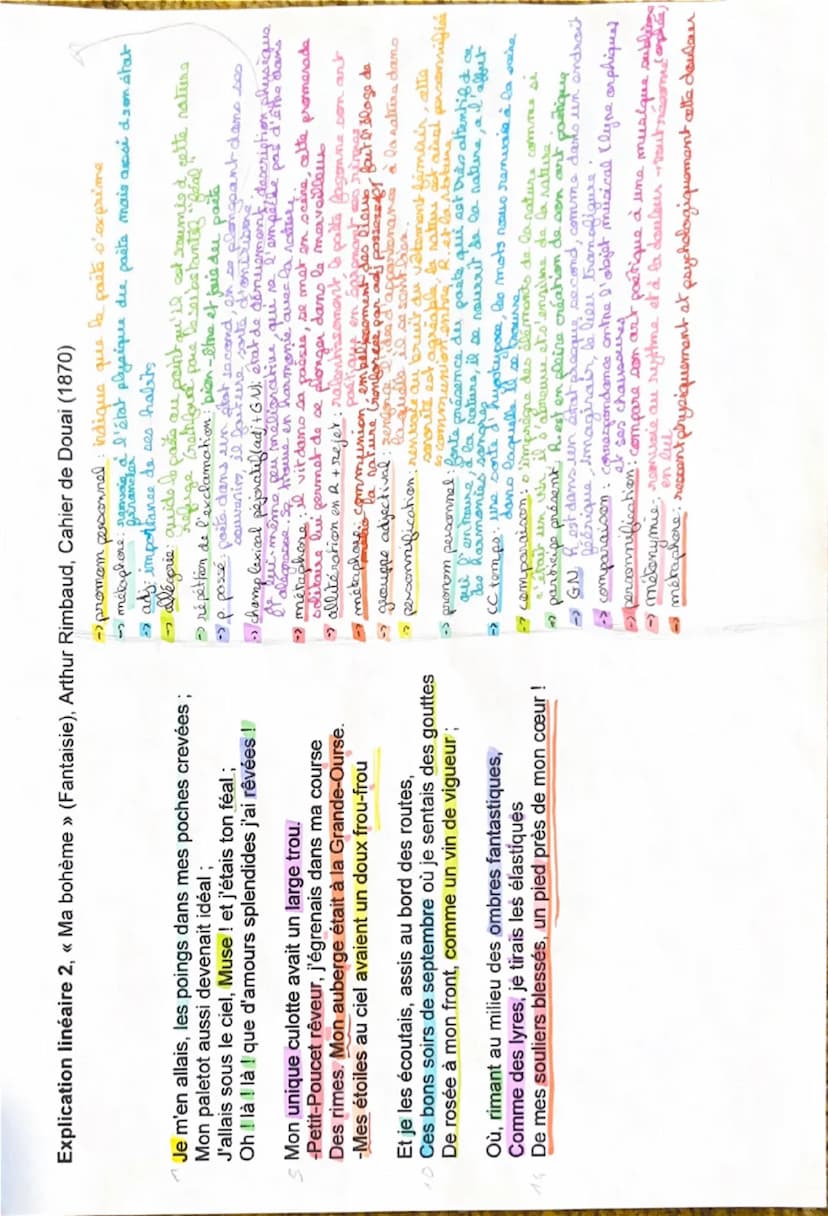 Explication linéaire 2, « Ma bohème » (Fantaisie), Arthur Rimbaud, Cahier de Douai (1870)
1
Je m'en allais, les poings dans mes poches crevées ;
Mon paletot aussi devenait idéal ;
J'allais sous le ciel, Muse ! et j'étais ton féal ;
Oh ! là ! là ! que d'amours splendides j'ai rêvées !
5
Mon unique culotte avait un large trou.
-Petit-Poucet rêveur, j'égrenais dans ma course
Des rimes. Mon auberge était à la Grande-Ourse.
-Mes étoiles au ciel avaient un doux frou-frou
Et je les écoutais, assis au bord des routes,
10
Ces bons soirs de septembre où je sentais des gouttes
De rosée à mon front, comme un vin de vigueur ;
Où, rimant au milieu des ombres fantastiques,
Comme des lyres, je tirais les élastiques
14
De mes souliers blessés, un pied près de mon cœur !
-> pronom personnel : indique que le poète s'exprime
-> métaphore : renvoie à l'état physique du poète mais aussi à son état
financier
-> adj : importance de ses habits
-> allégorie : guide le poète au point qu'il est soumis à cette nature
refuge (renforcé par le substantif "féal")
-> répétition de l'exclamation : bien-être et joie du poète
-> p. passé : poète dans un état second, en se plongeant dans ses
souvenirs il
-> champ lexical péjoratif (adj + GN) : état de dénuement, description physique
de lui-même peu méliorative, qui ne l'empêche pas d'être dans
l'allégresse. Se trouve en harmonie avec la nature.
-> métaphore : il vit dans sa poésie, se met en scène, cette promenade
solitaire lui permet de se plonger dans le merveilleux
-> allitération en R + rejet : le poète façonne son art
poétique en égrenant ses rimes
-> métaphore : communion, fait l'éloge de
la nature (renforcée par adj possessif)
-> groupe adjectival : à la nature dans
laquelle il se sent bien
-> personnification : renvoie au bruit du vêtement féminin, cette
sonorité est agréable, la nature est ainsi personnifiée
-> communion entre R et la nature
-> pronom personnel : forte présence du poète qui est très attentif à ce
qui l'entoure, à la nature, il se nourrit de la nature, à l'affût
des harmonies
-> CC temps : une sorte d'hypotypose, les mots nous renvoie à la scène
dans laquelle il se trouve
-> comparaison : s'imprègne des éléments de la nature comme si
c'était un vin, il s'abreuve et s'enivre de la nature
-> participe présent : R est en pleine création de son art poétique
-> GN : R est dans un état presque second, comme dans un endroit
féérique, imaginaire, le lieu transfiguré.
-> comparaison : correspondance entre l'objet musical (lyre orphique)
et ses chaussures
-> personnification : compare son art poétique à une musique sublime
-> métonymie : renvoie au rythme et à la douleur
en lui
-> métaphore : ressent physiquement et psychologiquement cette douleur